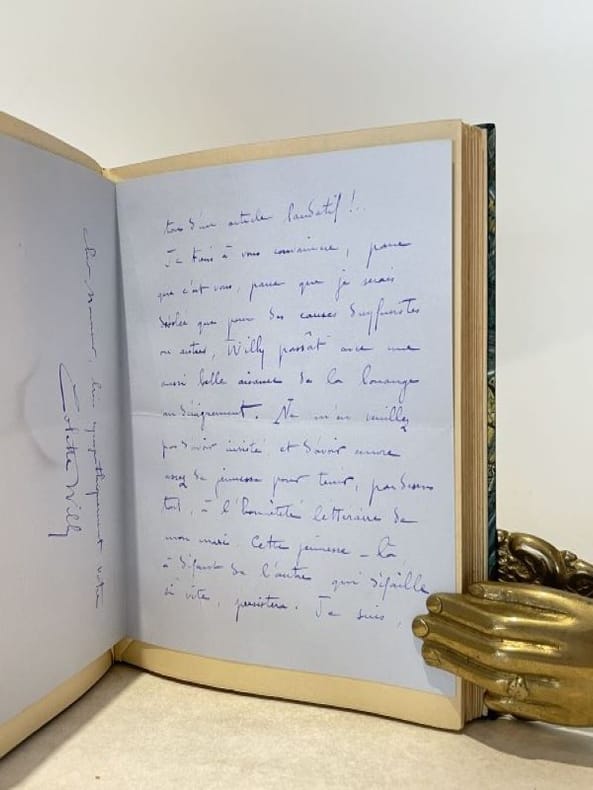 d'un article laudatif !..
Je tiens à vous convaincre, parce
que c'est vous, parce que je serais
désolée que pour des causes dreyfusistes
ou autres, Willy passât avec une
aussi belle aisance de la louange
au dénigrement. Ne m'en veuillez
pas d'avoir insisté, et d'avoir encore
assez de jeunesse pour tenir, par dessus
tout, à l'honnêteté littéraire de
mon mari. Cette jeunesse-là
à défaut de l'autre qui défaille
si vite, persistera. Je suis,
cher Monsieur, bien sympathiquement vôtre
Colette Willy